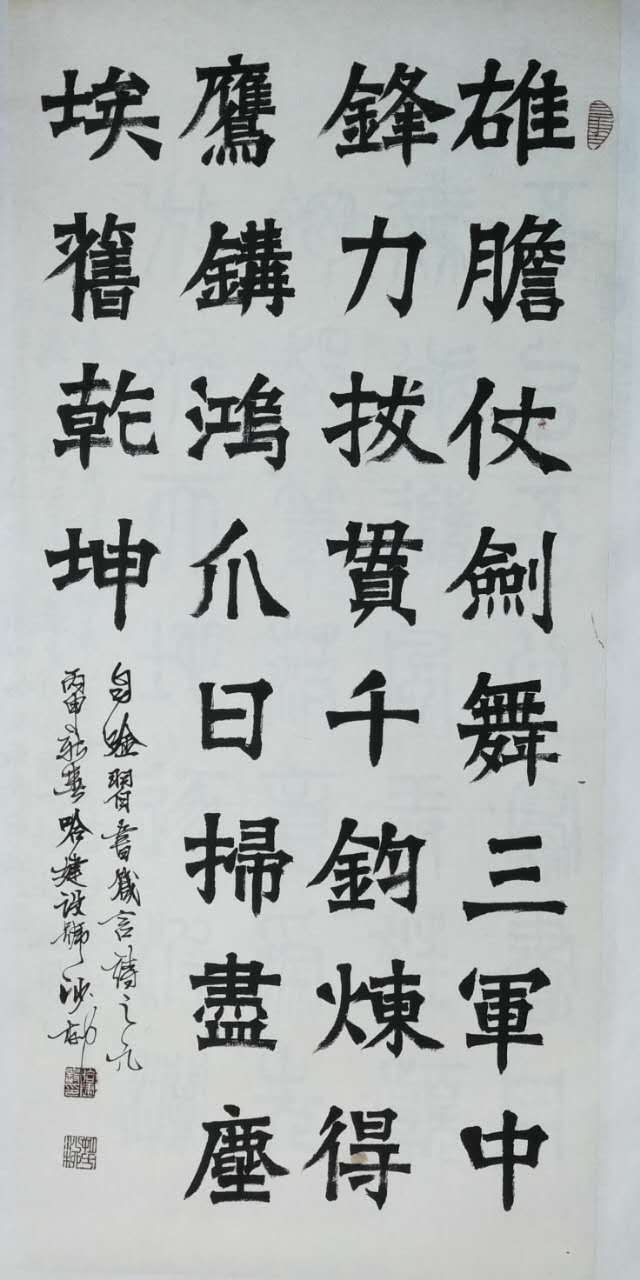 雄膽仗劍舞三軍中
鋒力拔貫千鈞煉得
鷹鏂鴻爪日掃盡塵
埃舊乾坤
自 習書箴言詩之九
丙申 設 沙